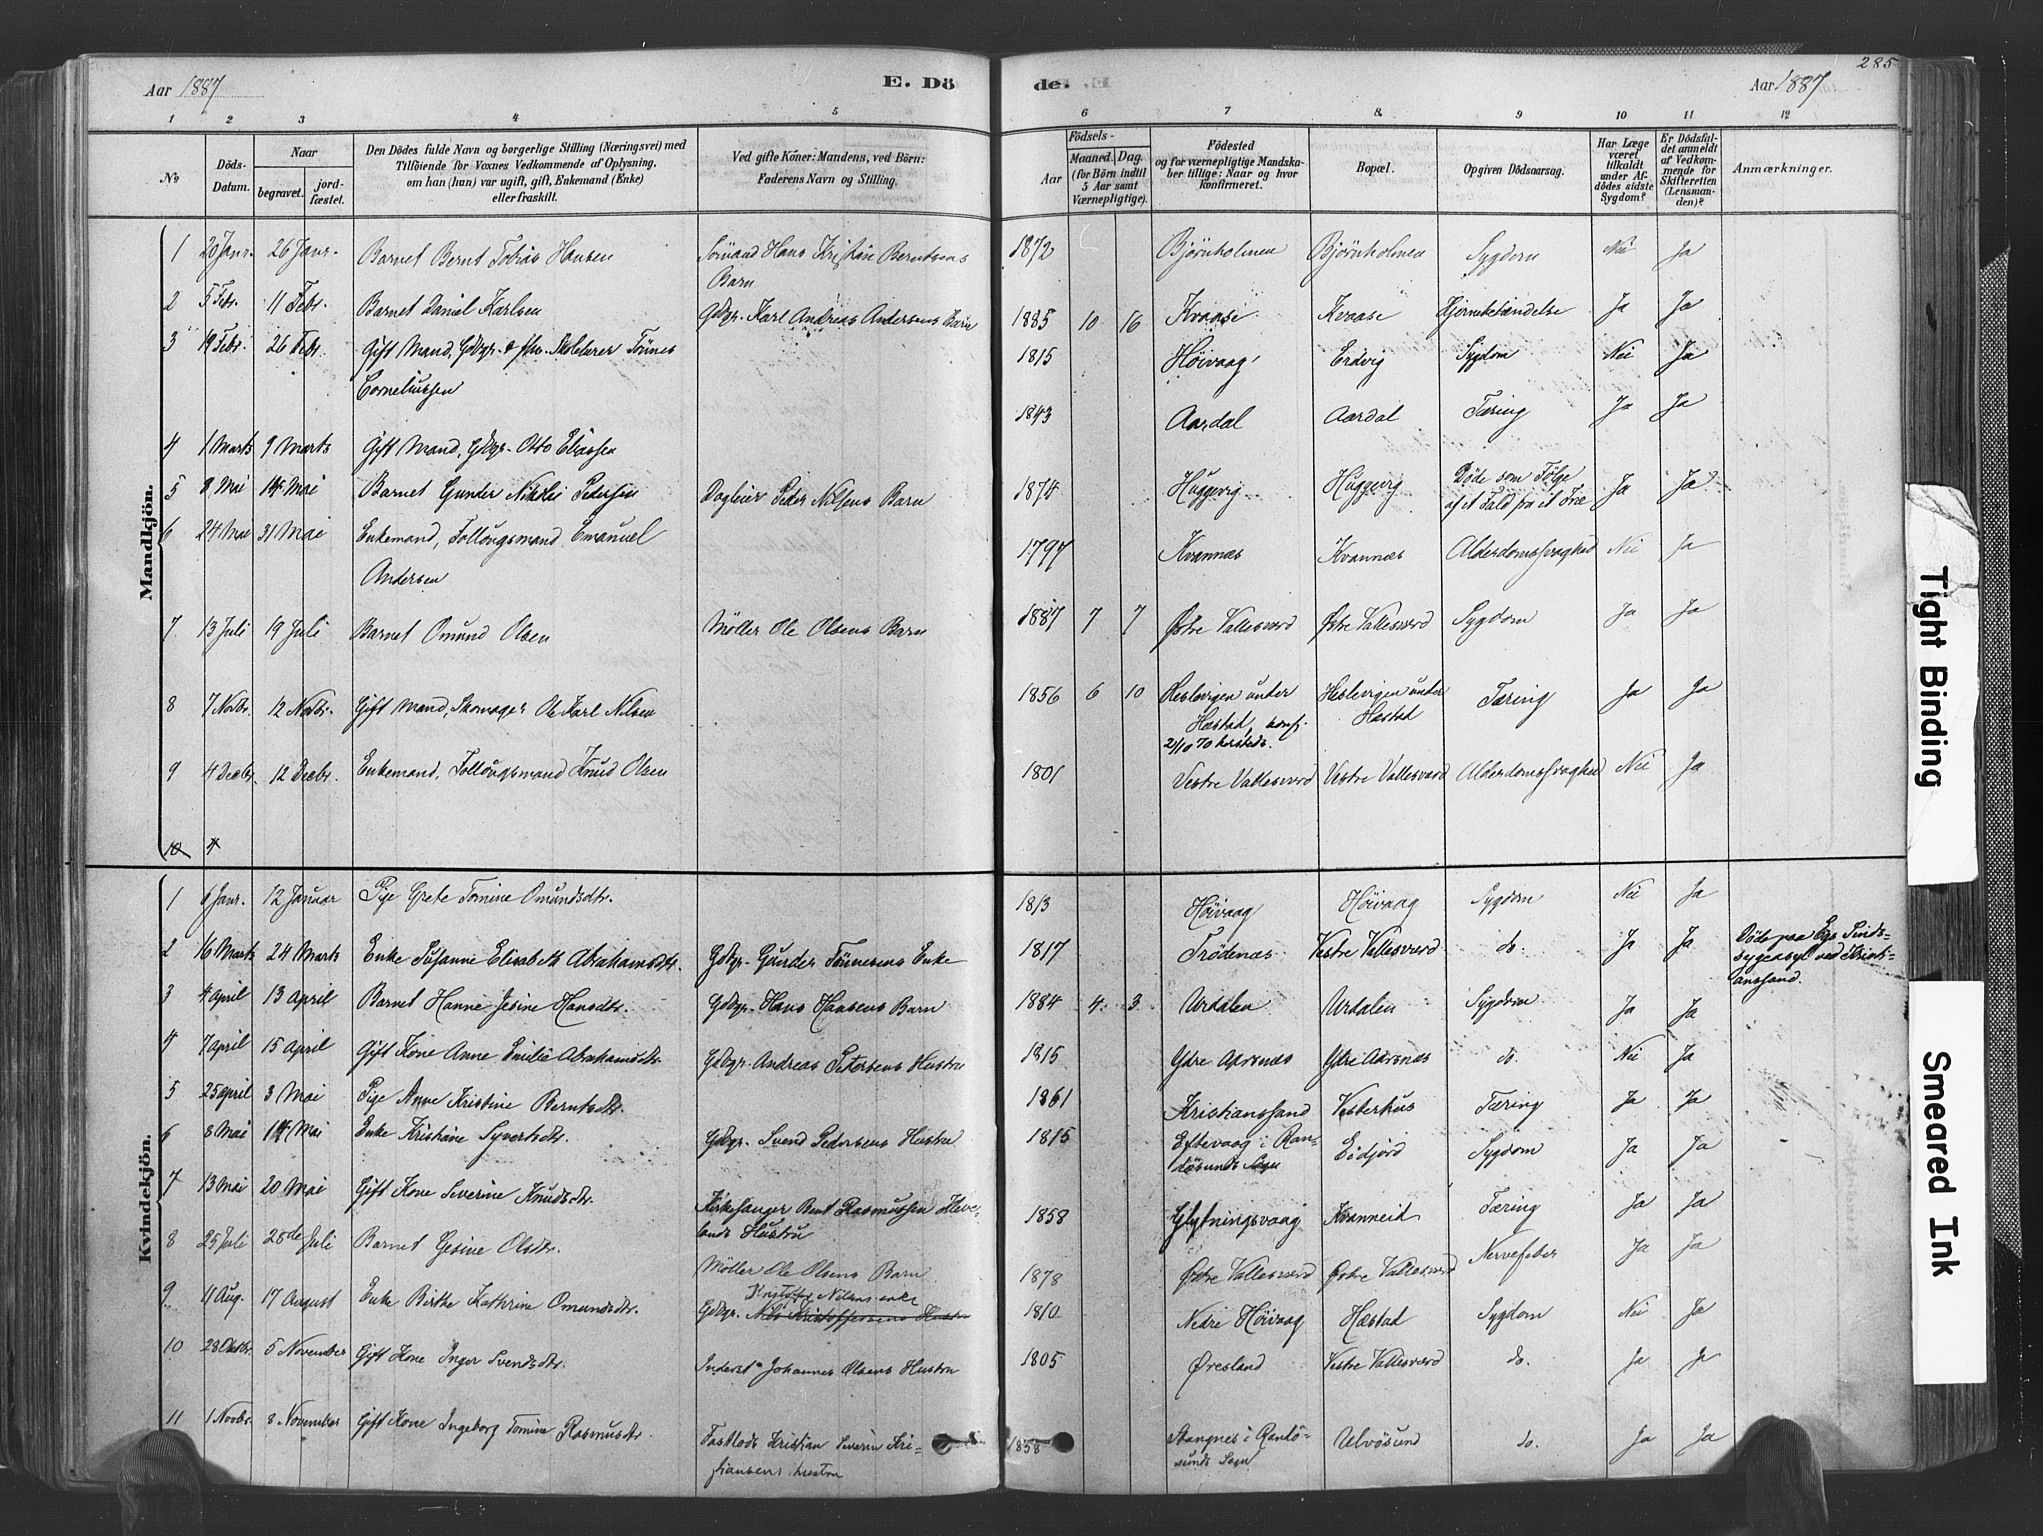 285
Aar 1887 E. Dö de. Aar 1887
1 2 3 4 5 6 7 8. 9 10 11 12
No
Döds-Datum.
Naar
begravet. jord-fæstet.
Den Dödes fulde Navn og borgerlige Stilling (Næringsvei) med
Tilföiende for Voxnes Vedkommende af Oplysning.
om han (hun) var ugift, gift, Enkemand (Enke)
eller fraskilt.
Ved gifte Koner: Mandens, ved Börn:
Faderens Navn og Stilling.
Födsels-
Aar Maaned. Dag.
(for Börn indtil
5 Aar samt
Værnepligtige).
Födested
og for værnepligtige Mandska-
ber tillige: Naar og hvor
konfirmeret.
Bopæl.
Opgiven Dödsaarsag.
Har Læge
været
tilkaldt
under Af-
dödes sidste
Sygdom?
Er Dödsfal-
det anmeldt
af Vedkom-
mende for
Skifteretten
(Lensman-
den)?
Anmærkninger.
Mandkjön.
1 20 Janr. 26 Janr. Barnet Bernt Tobias Hansen Sömand Hans Kristian Berntsens 1872 Bjørnholmen Bjørnholmen Sygdom Nei Ja
Barn
2 5 Febr. 11 Febr. Barnet Daniel Karlsen Gdbgr. Karl Andreas Andersens Barn 1885 10 16 Kvaase Kvaase Hjernebetændelse Ja Ja
3 19 Febr. 26 Febr. Gift Mand, Gdbgr. & fhv. Skolelærer Tönnes 1815 Höivaag Eidvig Sygdom Nei Ja
Corneliussen
4 1 Marts 9 Marts Gift Mand, Gdbgr. Otto Eliassen 1843 Aardal Aardal Tæring Ja Ja
5 8 Mai 14 Mai Barnet Gunder Nikolai Petersen Dagleier Peder Nilsens Barn 1874 Huggevig Huggevig Döde som Fölge Ja Ja
af et Fald fra et Træ
6 24 Mai 31 Mai Enkemand, Follougsmand Emanuel 1797 Kvannæs Kvannæs Alderdomssvaghed Nei Ja
Andersen
7 13 Juli 19 Juli Barnet Omund Olsen Møller Ole Olsens Barn 1887 7 7 Østre Vallesværd Østre Vallesværd Sygdom Ja Ja
8 7 Novbr. 12 Novbr. Gift Mand, Skomager Ole Karl Nilsen 1856 6 10 Heslevigen under Heslevigen under Tæring Ja Ja
Hæstad, konf. Hæstad
2/10 70 hersteds.
9 4 Decbr. 12 Decbr. Enkemand, Follougsmand Knud Olsen 1801 Vestre Vallesværd Vestre Vallesværd Alderdomssvaghed Nei Ja
10 4
Kvindekjön.
1 6 Janr. 12 Januar Pige Grete Tomine Omundsdtr. 1813 Höivaag Höivaag Sygdom Nei Ja
2 16 Marts 24 Marts Enke Susanne Elisabeth Abrahamsdtr. Gdbgr. Gunder Tönnesens Enke 1817 Trödenæs Vestre Vallesværd do. Ja Ja Döde paa Egs Sinds-
sygeasyl ved Kristi-
anssand.
3 4 April 13 April Barnet Hanne Jesine Hansdtr. Gdbgr. Hans Hansens Barn 1884 4. 3 Urdalen Urdalen Sygdom Ja Ja
4 7 April 15 April Gift Kone Anne Emilie Abrahamsdtr. Gdbgr. Andreas Petersens Hustru 1815 Ydre Aarsnæs Ydre Aarsnæs do. Nei Ja
5 25 April 3 Mai Pige Anne Kristine Berntsdtr. 1861 Kristianssand Vesterhus Tæring Ja Ja
6 8 Mai 14 Mai Enke Kristiane Syvertsdtr. Gdbgr. Svend Pedersens Hustru 1815 Eftevaag i Ran- Eidjord Sygdom Ja Ja
dösunds Sogn
7 13 Mai 20 Mai Gift Kone Severine Knudsdtr. Kirkesanger Bent Rasmussen Heve- 1858 Glytningsvaag Kvanneid Tæring Ja Ja
lands Hustru
8 25 Juli 28de Juli Barnet Gesine Olsdtr. Møller Ole Olsens Barn 1878 Østre Vallesværd Østre Vallesværd Nervefeber Ja Ja
Kristoffer Nilsens enke
9 11 Aug. 17 August Enke Birthe Kathrine Omundsdtr. Gdbgr. Nils Kristoffersens Hustru 1810 Nedre Höivaag Hæstad Sygdom Nei Ja
10 28 Oktbr. 5 November Gift Kone Inger Svendsdtr. Inderst Johannes Olsens Hustru 1805 Øresland Vestre Vallesværd do. Ja Ja
11 1 Novbr. 8 November Gift Kone Ingeborg Tomine Rasmusdtr. Fastlods Kristian Severin Kri- 1858 Stangnes i Randö- Ulvösund do. Ja Ja
stiansens hustru sunds Sogn
Tight Binding
Smeared Ink